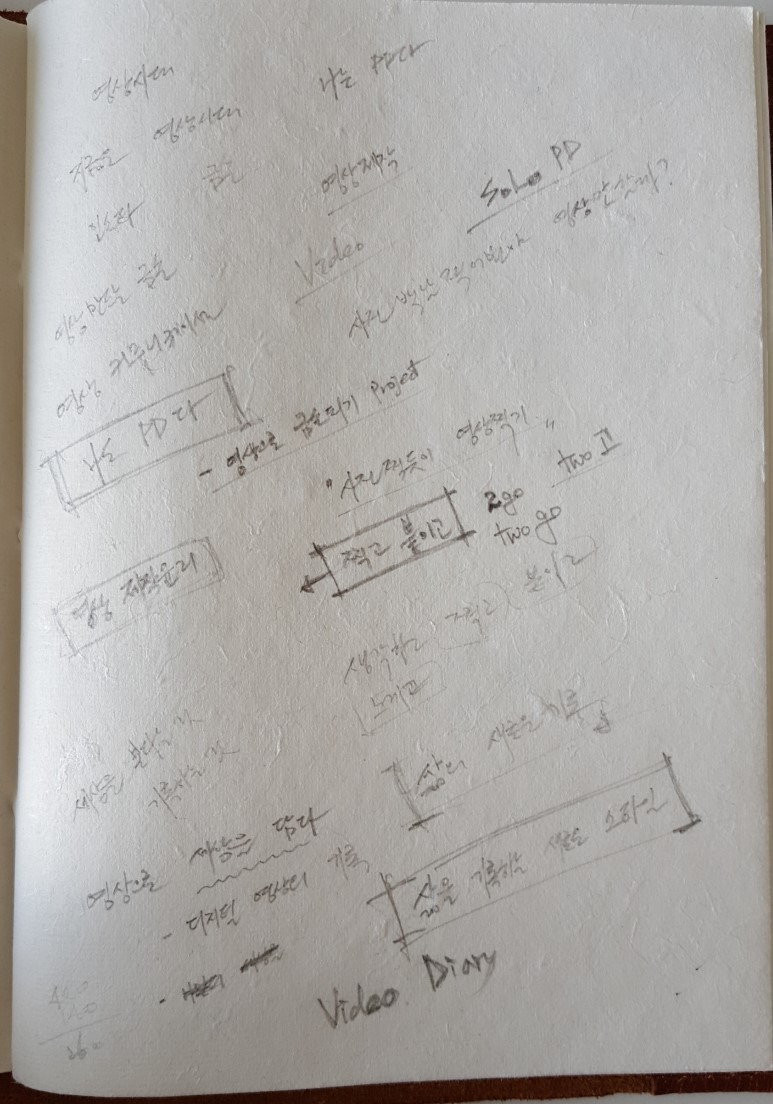 영상시대
나는 PD다
지금은 영상시대
글쓴
영상제작
Solo PD
Video
영상 만드는
사진 찍어봤나 영상만
영상 커뮤니케이션
나도 PD다
- 영상으로 Project
"사진찍듯이 영상찍기"
찍고 붙이고
2go
two고
two go
영상 제작윤리
생각하고 찍고 붙이고
세상을 본다는 것
기록하는 것
삶의 새로운 기록
영상으로 세상을 담다
- 디지털 영상의 기록
삶을 기록하는 새로운 스타일
Video Diary